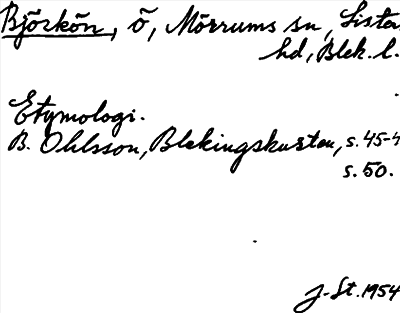 Björkön, ö, Mörrums sn, Lister
hd, Blek. l.
Etymologi.
B. Ohlsson, Blekingskusten, s. 45-4
s. 50.
J-St. 1954